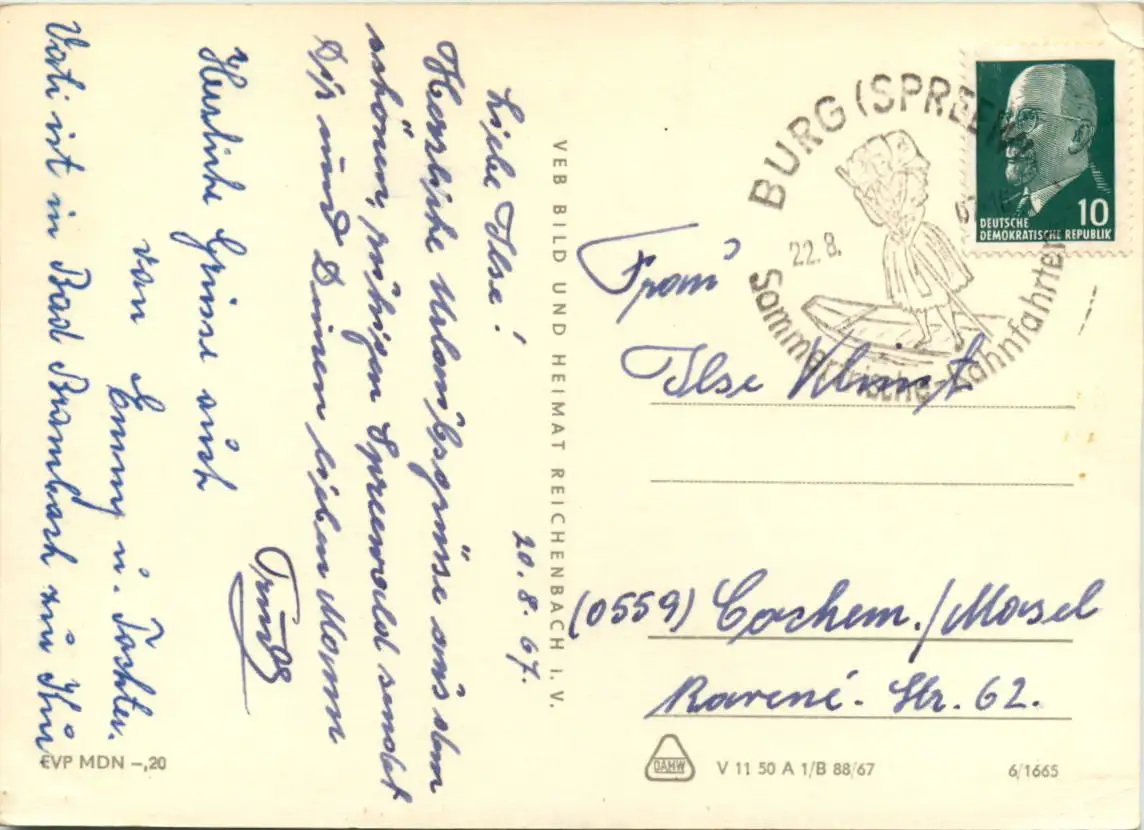 20. 8. 67.
Liebe Ilse!
Herzliche Urlaubsgrüsse aus dem
schönen, ruhigen Spreewald sendet
Dir und Deinem lieben Mann
Trude
Herzliche Grüsse auch
von Emmy u. Tochter.
Vati ist in Bad Brambach zur Kur
EVP MDN –,20
VEB BILD UND HEIMAT REICHENBACH I. V.
BURG (SPREEW
22.8.
Sommerfrische-Kahnfahrten
10
DEUTSCHE
DEMOKRATISCHE REPUBLIK
Frau
Ilse
(0559) Cochem./Mosel
Ravené-Str. 62.
DAMW
V 11 50 A 1/B 88/67
6/1665